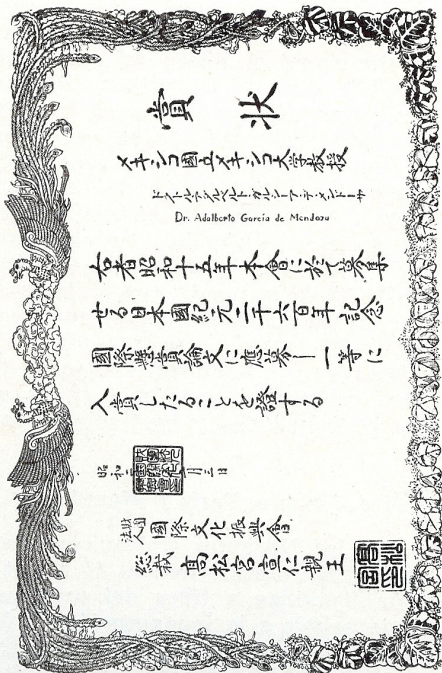 賞状
メキシコ國立メキシコ大學教授
ドクトルアダルベルト・ガルシーア・デ・メンドーサ
Dr. Adalberto García de Mendoza
右者昭和十五年本會に於て募集
せる日本國紀元二千六百年記念
國際懸賞論文に應募し一等に
入賞したることを證する
昭和 月三日
財團法人 國際文化振興會
総裁 高松宮宣仁親王